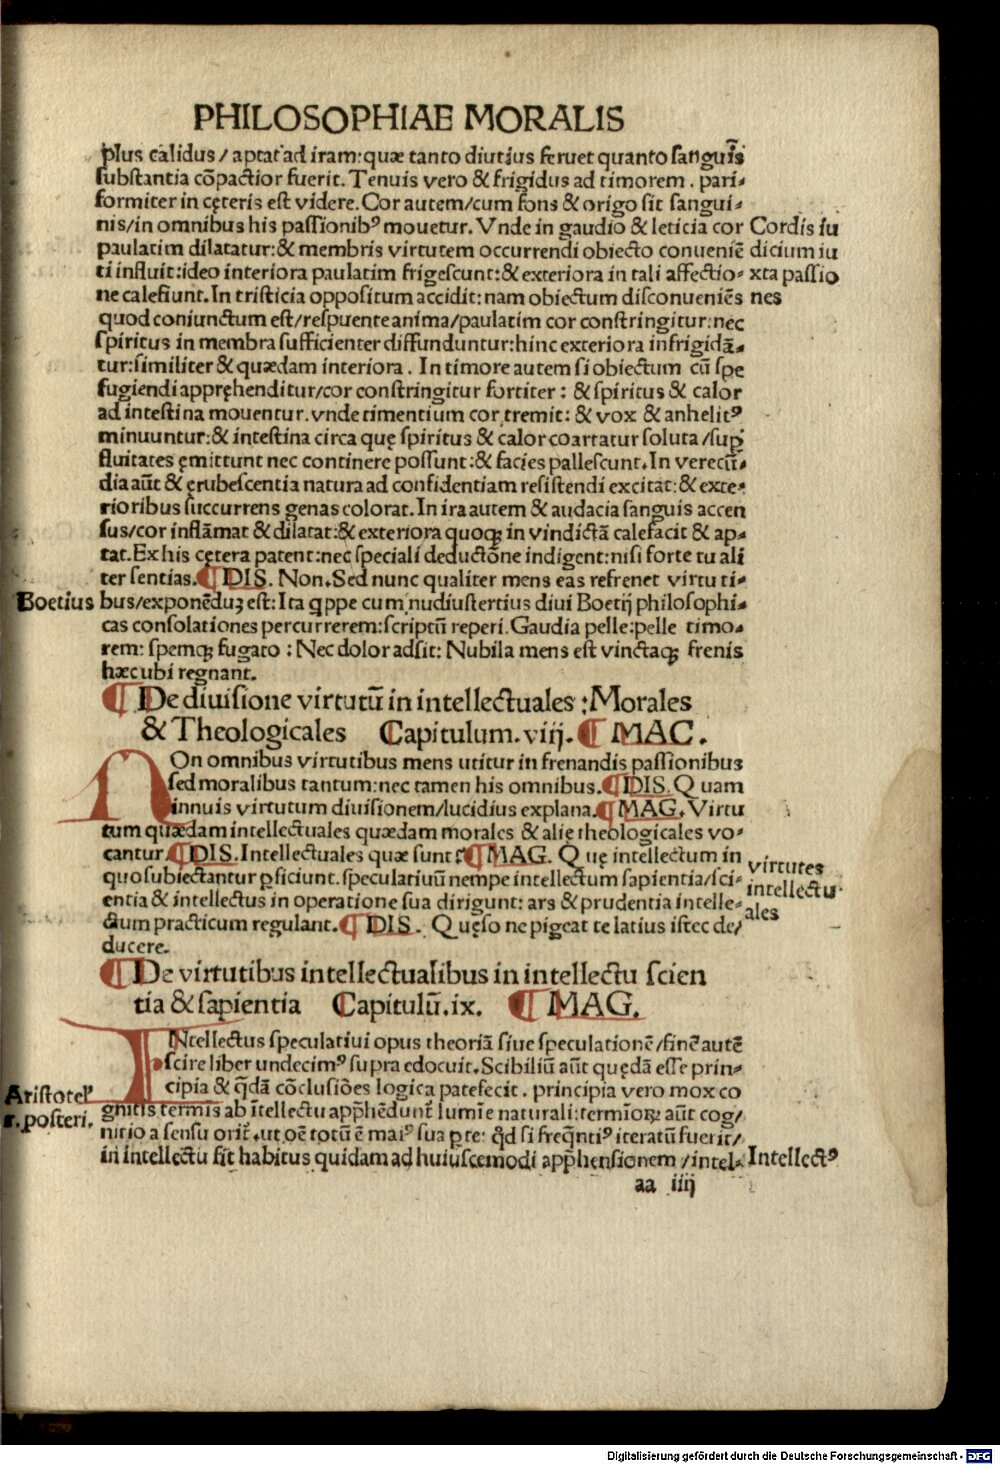 PHILOSOPHIAE MORALIS
plus calidus / aptat᾽ ad iram: quæ tanto diutius feruet quanto sanguis̄
substantia cōpactior fuerit. Tenuis vero & frigidus ad timorem. pari-
formiter in cęteris est videre. Cor autem/cum fons & origo sit sangui-
nis/in omnibus his passionibꝰ mouetur. Vnde in gaudio & leticia cor
Cordis iu
paulatim dilatatur: & membris virtutem occurrendi obiecto conueniē
dicium iu
ti influit: ideo interiora paulatim frigescunt: & exteriora in tali affectio-
xta passio
ne calefiunt. In tristicia oppositum accidit: nam obiectum disconueniēs
nes
quod coniunctum est/respuente anima/paulatim cor constringitur: nec
spiritus in membra sufficienter diffunduntur: hinc exteriora infrigidā-
tur: similiter & quædam interiora. In timore autem si obiectum cū spe
fugiendi appręhenditur/cor constringitur fortiter: & spiritus & calor
ad intestina mouentur. vnde timentium cor tremit: & vox & anhelitꝰ
minuuntur: & intestina circa quę spiritus & calor coartatur soluta/sup̄
fluitates ęmittunt nec continere possunt: & facies pallescunt. In verecū-
dia aūt & ęrubescentia natura ad confidentiam resistendi excitat: & exte-
rioribus succurrens genas colorat. In ira autem & audacia sanguis accen
sus/cor inflāmat & dilatat: & exteriora quoqꝫ in vindictā calefacit & ap-
tat. Ex his cętera patent: nec speciali deductōne indigent: nisi forte tu ali
ter sentias. ¶ DIS. Non. Sed nunc qualiter mens eas refrenet virtuti-
Boetius
bus/exponēduꝫ est: Ita qppe cum nudiustertius diui Boetij philosophi-
cas consolationes percurrerem: scriptū reperi. Gaudia pelle: pelle timo-
rem: spemqꝫ fugato: Nec dolor adsit: Nubila mens est vinctaqꝫ frenis
hæc ubi regnant.
¶ De diuisione virtutū in intellectuales: Morales
& Theologicales Capitulum. viij. ¶ MAG.
NOn omnibus virtutibus mens utitur in frenandis passionibus
sed moralibus tantum: nec tamen his omnibus. ¶ DIS. Quam
innuis virtutum diuisionem/lucidius explana. ¶ MAG. Virtu
tum quædam intellectuales quædam morales & alię theologicales vo-
cantur. ¶ DIS. Intellectuales quæ sunt? ¶ MAG. Quę intellectum in
virtutes
quo subiectantur ꝑficiunt. speculatiuū nempe intellectum sapientia/sci-
intellectu-
entia & intellectus in operatione sua dirigunt: ars & prudentia intelle-
ales
ctum practicum regulant. ¶ DIS. Quęso ne pigeat te latius istec de/
ducere.
¶ De virtutibus intellectualibus in intellectu scien
tia & sapientia Capitulū. ix. ¶ MAG.
INtellectus speculatiui opus theoriā siue speculationē/finē autē
scire liber undecimꝰ supra edocuit. Scibiliū aūt quędā esse prin-
Aristotel᾽
cipia & q̄dā cōclusiōes logica patefecit. principia vero mox co
1. posteri.
gnitis termīs ab ītellectu appħēdunt᷑ lumīe naturali: termīorꝫ aūt cog/
nitio a sensu orit᷑. ut oē totū ē maiꝰ sua ꝑte: qđ si freq̄ntiꝰ iteratū fuerit/
in intellectu fit habitus quidam ad huiuscemodi appħensionem/intel-
Intellectꝰ
aa iiij
Digitalisierung gefördert durch die Deutsche Forschungsgemeinschaft - DFG